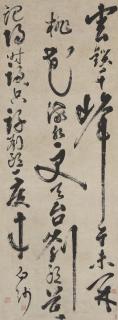 雲鎖千峰午未開
桃花流水更天台劉郎莫
記歸時路只許劉郎一度來
白沙